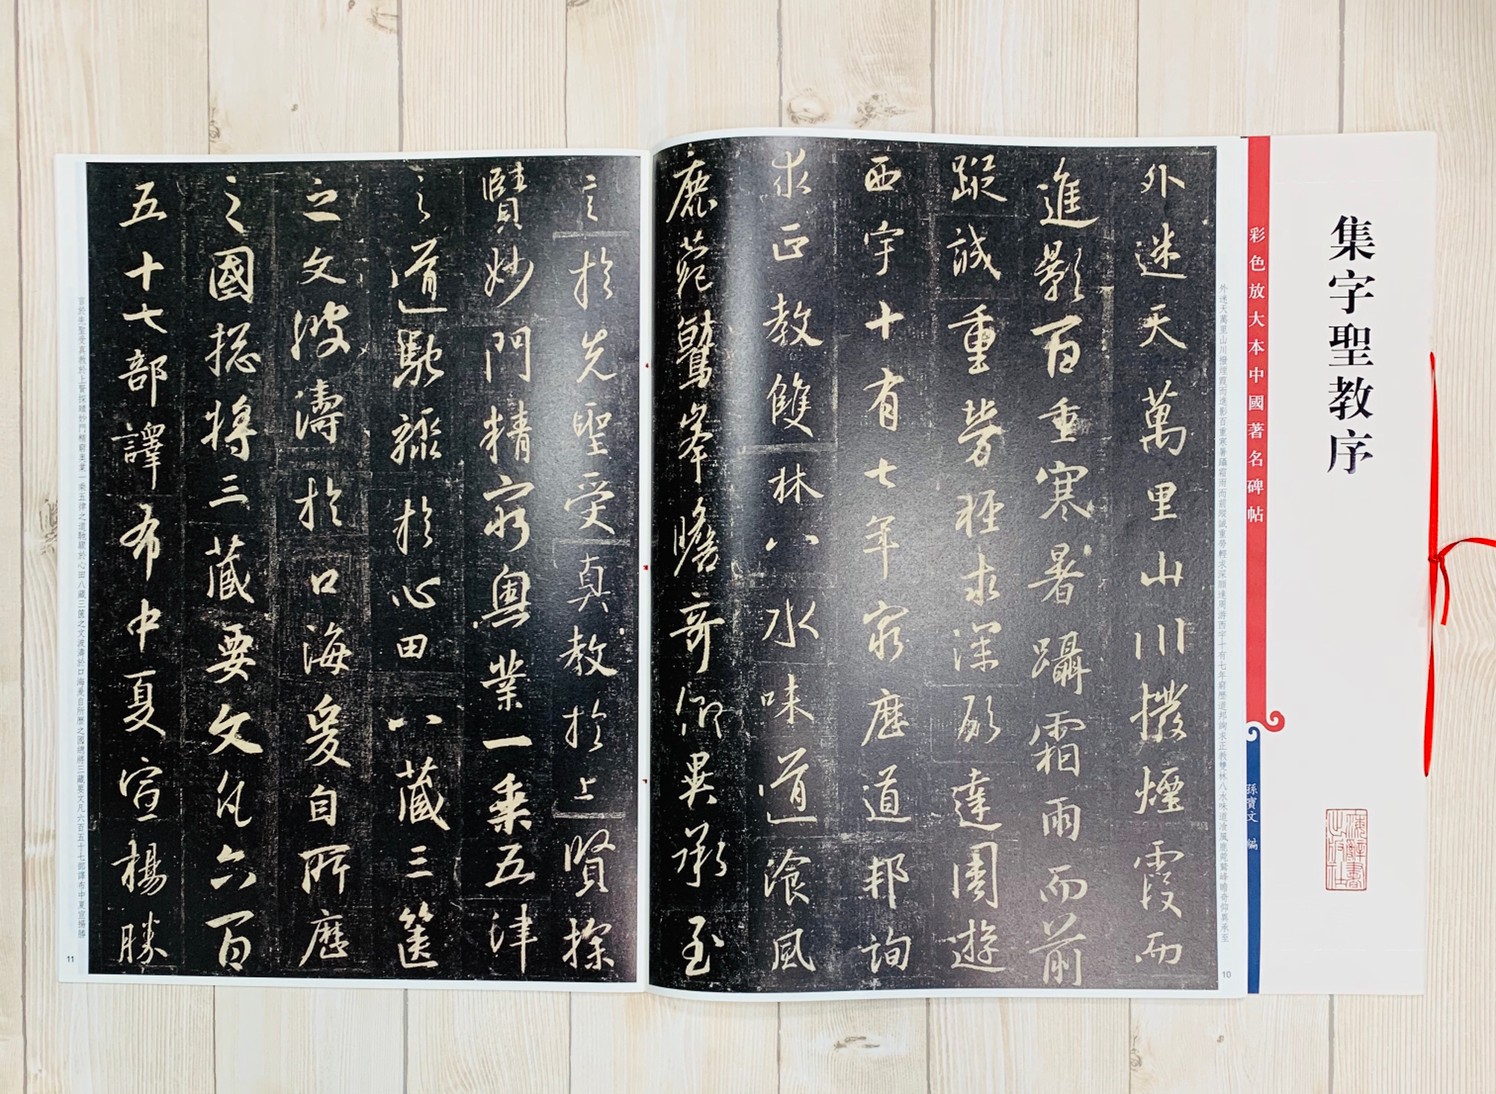 集字聖教序
上海辭書出版社
彩色放大本中國著名碑帖
孫寶文 編
外迷天萬里山川撥煙霞而進影百重寒暑躡霜雨而前蹤誠重勞輕求深願達周游西宇十有七年窮歷道邦詢求正教雙林八水味道飡風鹿苑鷲峰瞻奇仰異承至
10
外迷天萬里山川撥煙霞而
進影百重寒暑躡霜雨而前
蹤誠重勞輕求深願達周遊
西宇十有七年窮歷道邦詢
求正教雙林八水味道飡風
鹿菀鷲峯瞻奇仰異承至
言於先聖受真教於上賢探
賾妙門精窮奧業一乘五律
之道馳驟於心田八藏三篋
之文波濤於口海爰自所歷
之國摠將三藏要文凡六百
五十七部譯布中夏宣揚勝
言於先聖受真教於上賢探賾妙門精窮奧業一乘五律之道馳驟於心田八藏三篋之文波濤於口海爰自所歷之國總將三藏要文凡六百五十七部譯布中夏宣揚勝
11